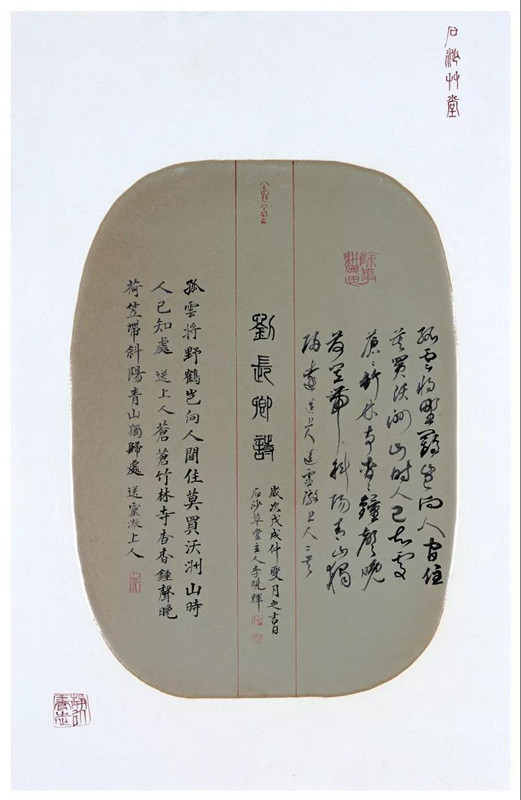 石沙艸堂
孤雲將野鶴豈向人間住
莫買沃洲山時人已知處
蒼蒼竹林寺杳杳鐘聲晚
荷笠帶斜陽青山獨
歸遠 送上人 送靈澈上人二首
劉長卿詩
歲次戊戌仲月之吉日
石沙草堂主人李曉輝
孤雲將野鶴豈向人間住莫買沃洲山時
人已知處 送上人 蒼蒼竹林寺杳杳鍾聲晚
荷笠帶斜陽青山獨歸處 送靈澈上人